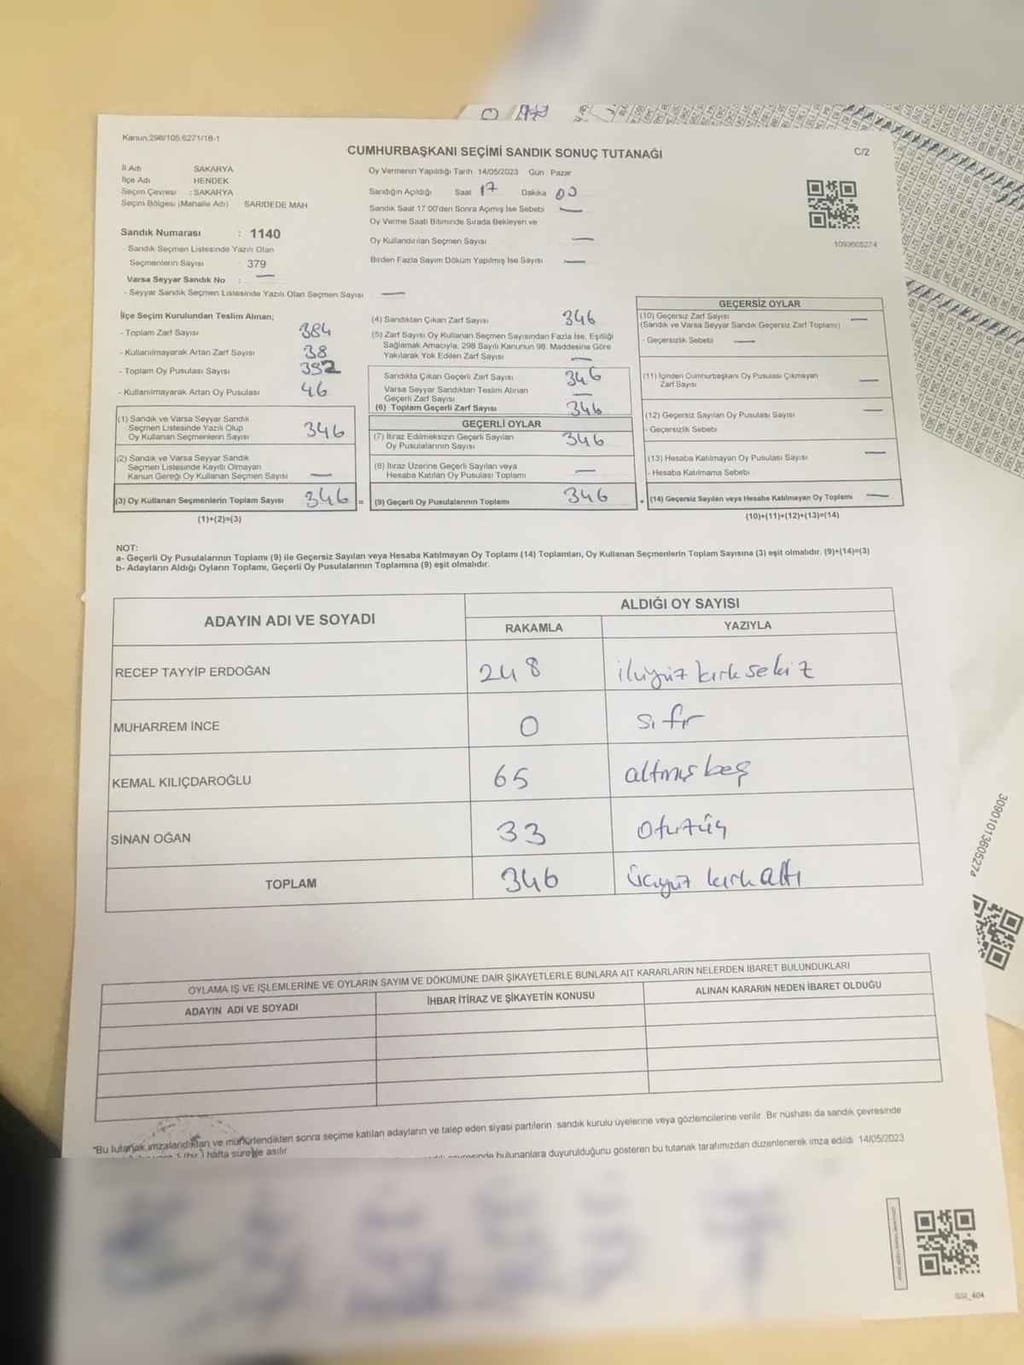 Kanun:298/105.6271/18-1
CUMHURBAŞKANI SEÇİMİ SANDIK SONUÇ TUTANAĞI
C/2
İl Adı SAKARYA
İlçe Adı HENDEK
Seçim Çevresi : SAKARYA
Seçim Bölgesi (Mahalle Adı) SARIDEDE MAH
Sandık Numarası : 1140
- Sandık Seçmen Listesinde Yazılı Olan
Seçmenlerin Sayısı : 379
Varsa Seyyar Sandık No : —
- Seyyar Sandık Seçmen Listesinde Yazılı Olan Seçmen Sayısı —
Oy Vermenin Yapıldığı Tarih 14/05/2023 Gün Pazar
Sandığın Açıldığı Saat 17 Dakika 00
Sandık Saat 17:00'den Sonra Açılmış İse Sebebi —
Oy Verme Saati Bitiminde Sırada Bekleyen ve
Oy Kullandırılan Seçmen Sayısı —
Birden Fazla Sayım Döküm Yapılmış İse Sayısı —
1093605274
İlçe Seçim Kurulundan Teslim Alınan;
- Toplam Zarf Sayısı 384
- Kullanılmayarak Artan Zarf Sayısı 38
- Toplam Oy Pusulası Sayısı 392
- Kullanılmayarak Artan Oy Pusulası 46
(1) Sandık ve Varsa Seyyar Sandık
Seçmen Listesinde Yazılı Olup
Oy Kullanan Seçmenlerin Sayısı 346
(2) Sandık ve Varsa Seyyar Sandık
Seçmen Listesinde Kayıtlı Olmayan
Kanun Gereği Oy Kullanan Seçmen Sayısı —
(3) Oy Kullanan Seçmenlerin Toplam Sayısı 346 =
(1)+(2)=(3)
(4) Sandıktan Çıkan Zarf Sayısı 346
(5) Zarf Sayısı Oy Kullanan Seçmen Sayısından Fazla İse, Eşitliği
Sağlamak Amacıyla, 298 Sayılı Kanunun 98. Maddesine Göre
Yakılarak Yok Edilen Zarf Sayısı —
Sandıkta Çıkan Geçerli Zarf Sayısı 346
Varsa Seyyar Sandıktan Teslim Alınan
Geçerli Zarf Sayısı —
(6) Toplam Geçerli Zarf Sayısı 346
GEÇERLİ OYLAR
(7) İtiraz Edilmeksizin Geçerli Sayılan
Oy Pusulalarının Sayısı 346
(8) İtiraz Üzerine Geçerli Sayılan veya
Hesaba Katılan Oy Pusulası Toplamı —
(9) Geçerli Oy Pusulalarının Toplamı 346 +
GEÇERSİZ OYLAR
(10) Geçersiz Zarf Sayısı —
(Sandık ve Varsa Seyyar Sandık Geçersiz Zarf Toplamı)
- Geçersizlik Sebebi —
(11) İçinden Cumhurbaşkanı Oy Pusulası Çıkmayan
Zarf Sayısı —
(12) Geçersiz Sayılan Oy Pusulası Sayısı —
- Geçersizlik Sebebi
(13) Hesaba Katılmayan Oy Pusulası Sayısı —
- Hesaba Katılmama Sebebi
(14) Geçersiz Sayılan veya Hesaba Katılmayan Oy Toplamı —
(10)+(11)+(12)+(13)=(14)
NOT:
a- Geçerli Oy Pusulalarının Toplamı (9) ile Geçersiz Sayılan veya Hesaba Katılmayan Oy Toplamı (14) Toplamları, Oy Kullanan Seçmenlerin Toplam Sayısına (3) eşit olmalıdır. (9)+(14)=(3)
b- Adayların Aldığı Oyların Toplamı, Geçerli Oy Pusulalarının Toplamına (9) eşit olmalıdır.
ADAYIN ADI VE SOYADI
ALDIĞI OY SAYISI
RAKAMLA YAZIYLA
RECEP TAYYİP ERDOĞAN 248 ikiyüz kırk sekiz
MUHARREM İNCE 0 sıfır
KEMAL KILIÇDAROĞLU 65 altmış beş
SİNAN OĞAN 33 otuzüç
TOPLAM 346 üçyüz kırk altı
OYLAMA İŞ VE İŞLEMLERİNE VE OYLARIN SAYIM VE DÖKÜMÜNE DAİR ŞİKAYETLERLE BUNLARA AİT KARARLARIN NELERDEN İBARET BULUNDUKLARI
ADAYIN ADI VE SOYADI İHBAR İTİRAZ VE ŞİKAYETİN KONUSU ALINAN KARARIN NEDEN İBARET OLDUĞU
*Bu tutanak imzalandıktan ve mühürlendikten sonra seçime katılan adayların ve talep eden siyasi partilerin sandık kurulu üyelerine veya gözlemcilerine verilir. Bir nüshası da sandık çevresinde
hafta süreyle asılır.
bulunanlara duyurulduğunu gösteren bu tutanak tarafımızdan düzenlenerek imza edildi. 14/05/2023
3090101360527４